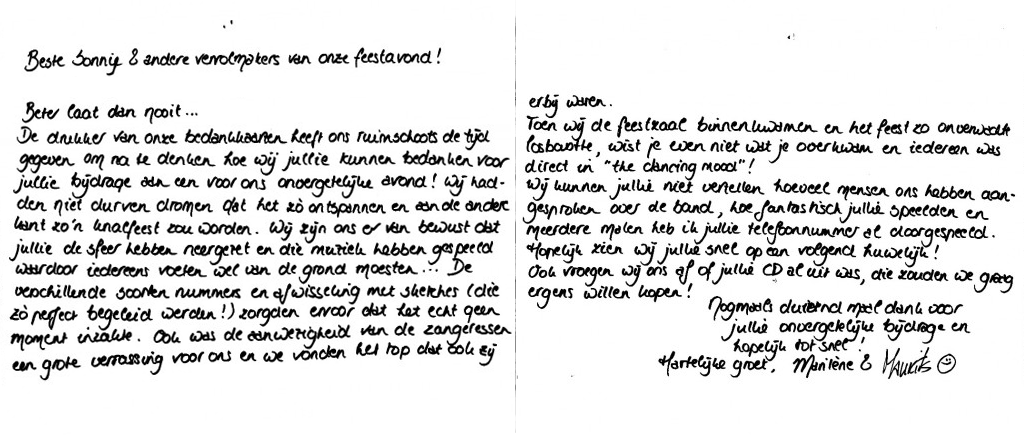 Beste Sonny & andere vervolmakers van onze feestavond!
Beter laat dan nooit...
De drukker van onze bedankkaarten heeft ons ruimschoots de tijd
gegeven om na te denken hoe wij jullie kunnen bedanken voor
jullie bijdrage aan een voor ons onvergetelijke avond! Wij had-
den niet durven dromen dat het zò ontspannen en aan de andere
kant zo'n knalfeest zou worden. Wij zijn ons er van bewust dat
jullie de sfeer hebben neergezet en die muziek hebben gespeeld
waardoor iedereens voeten wel van de grond moesten... De
verschillende soorten nummers en afwisseling met sketches (die
zò perfect begeleid werden!) zorgden ervoor dat het echt geen
moment inzakte. Ook was de aanwezigheid van de zangeressen
een grote verrassing voor ons en we vonden het top dat ook zij
erbij waren.
Toen wij de feestzaal binnenkwamen en het feest zo onverwacht
losbarstte, wist je even niet wat je overkwam en iedereen was
direct in "the dancing mood"!
Wij kunnen jullie niet vertellen hoeveel mensen ons hebben aan-
gesproken over de band, hoe fantastisch jullie speelden en
meerdere malen heb ik jullie telefoonnummer al doorgespeeld.
Hopelijk zien wij jullie snel op een volgend huwelijk!
Ook vroegen wij ons af of jullie CD al uit was, die zouden we graag
ergens willen kopen!
Nogmaals duizend maal dank voor
jullie onvergetelijke bijdrage en
hopelijk tot snel!
Hartelijke groet, Marilène & Maurits